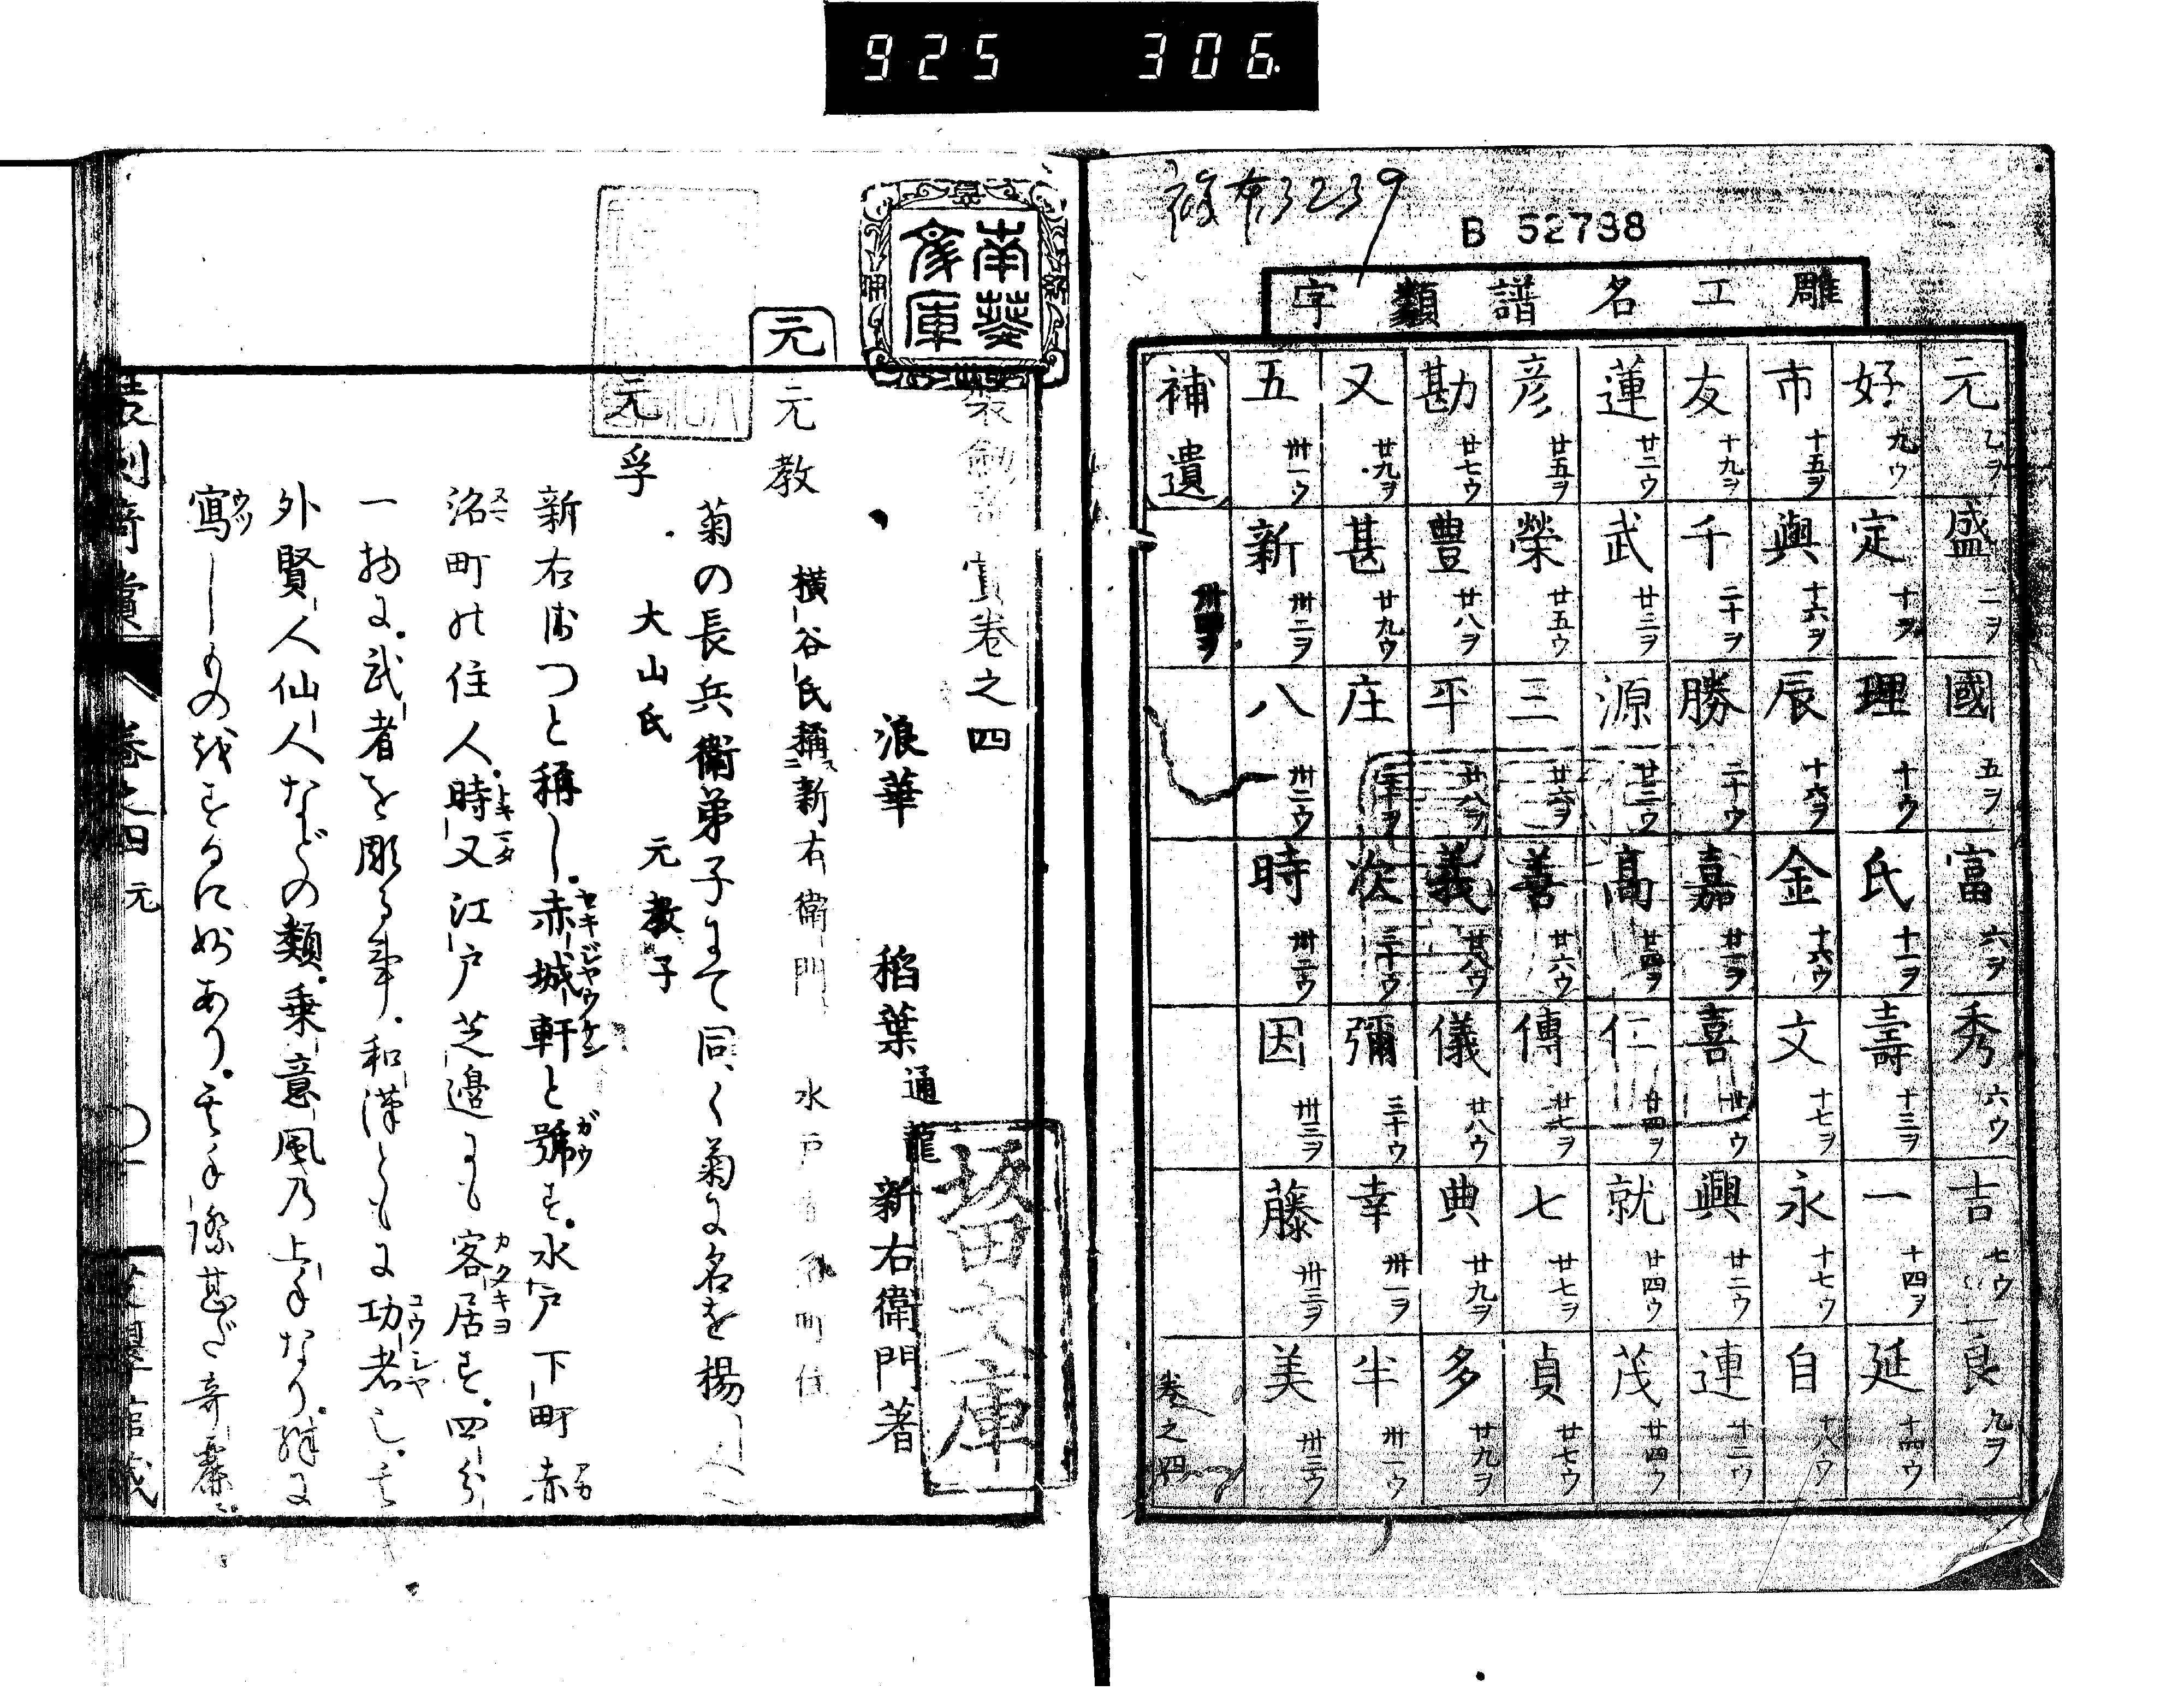 925 306
B 52738
雕工名譜類字
元 乙ヲ 盛 二ヲ 國 五ヲ 富 六ヲ 秀 六ウ 吉 七ウ 良 九ヲ
好 九ウ 定 十ヲ 理 十ウ 氏 十一ヲ 壽 十三ヲ 一 十四ヲ 延 十四ウ
市 十五ヲ 與 十六ヲ 辰 十六ヲ 金 十六ウ 文 十七ヲ 永 十七ウ 自 十八ウ
友 十九ヲ 千 二十ヲ 勝 二十ウ 嘉 廿一ヲ 喜 廿一ウ 興 廿二ウ 連 廿二ウ
蓮 廿二ウ 武 廿三ヲ 源 廿三ウ 高 廿四ヲ 仁 廿四ヲ 就 廿四ウ 茂 廿四ウ
彦 廿五ヲ 榮 廿五ウ 三 廿六ヲ 善 廿六ウ 傳 廿七ヲ 七 廿七ヲ 貞 廿七ウ
勘 廿七ウ 豊 廿八ヲ 平 廿八ヲ 義 廿八ウ 儀 廿八ウ 典 廿九ヲ 多 廿九ヲ
又 廿九ヲ 甚 廿九ウ 庄 三十ヲ 次 三十ウ 彌 三十ウ 幸 卅一ヲ 半 卅一ウ
五 卅一ウ 新 卅二ヲ 八 卅二ウ 時 卅二ウ 因 卅三ヲ 藤 卅三ヲ 美 卅三ウ
補遺 卅四ヲ
卷之四
南葵文庫
裝劔奇賞卷之四
浪華 稻葉通龍 新右衛門著
元
元教 横谷氏稱ス新右衛門ト 水戸
菊の長兵衛弟子にて同く菊に名を揚
元孚 大山氏 元教子
新右衛門と稱し赤城軒と號す水戸下町赤
沼町の住人時又江戸芝邊にも客居す四分
一物に武者を彫る事和漢ともに功者也其
外賢人仙人などの類乗意風乃上手なり殊に
寫しもの抔するに妙あり其手際甚だ奇麗
裝劔奇賞 卷之四 元